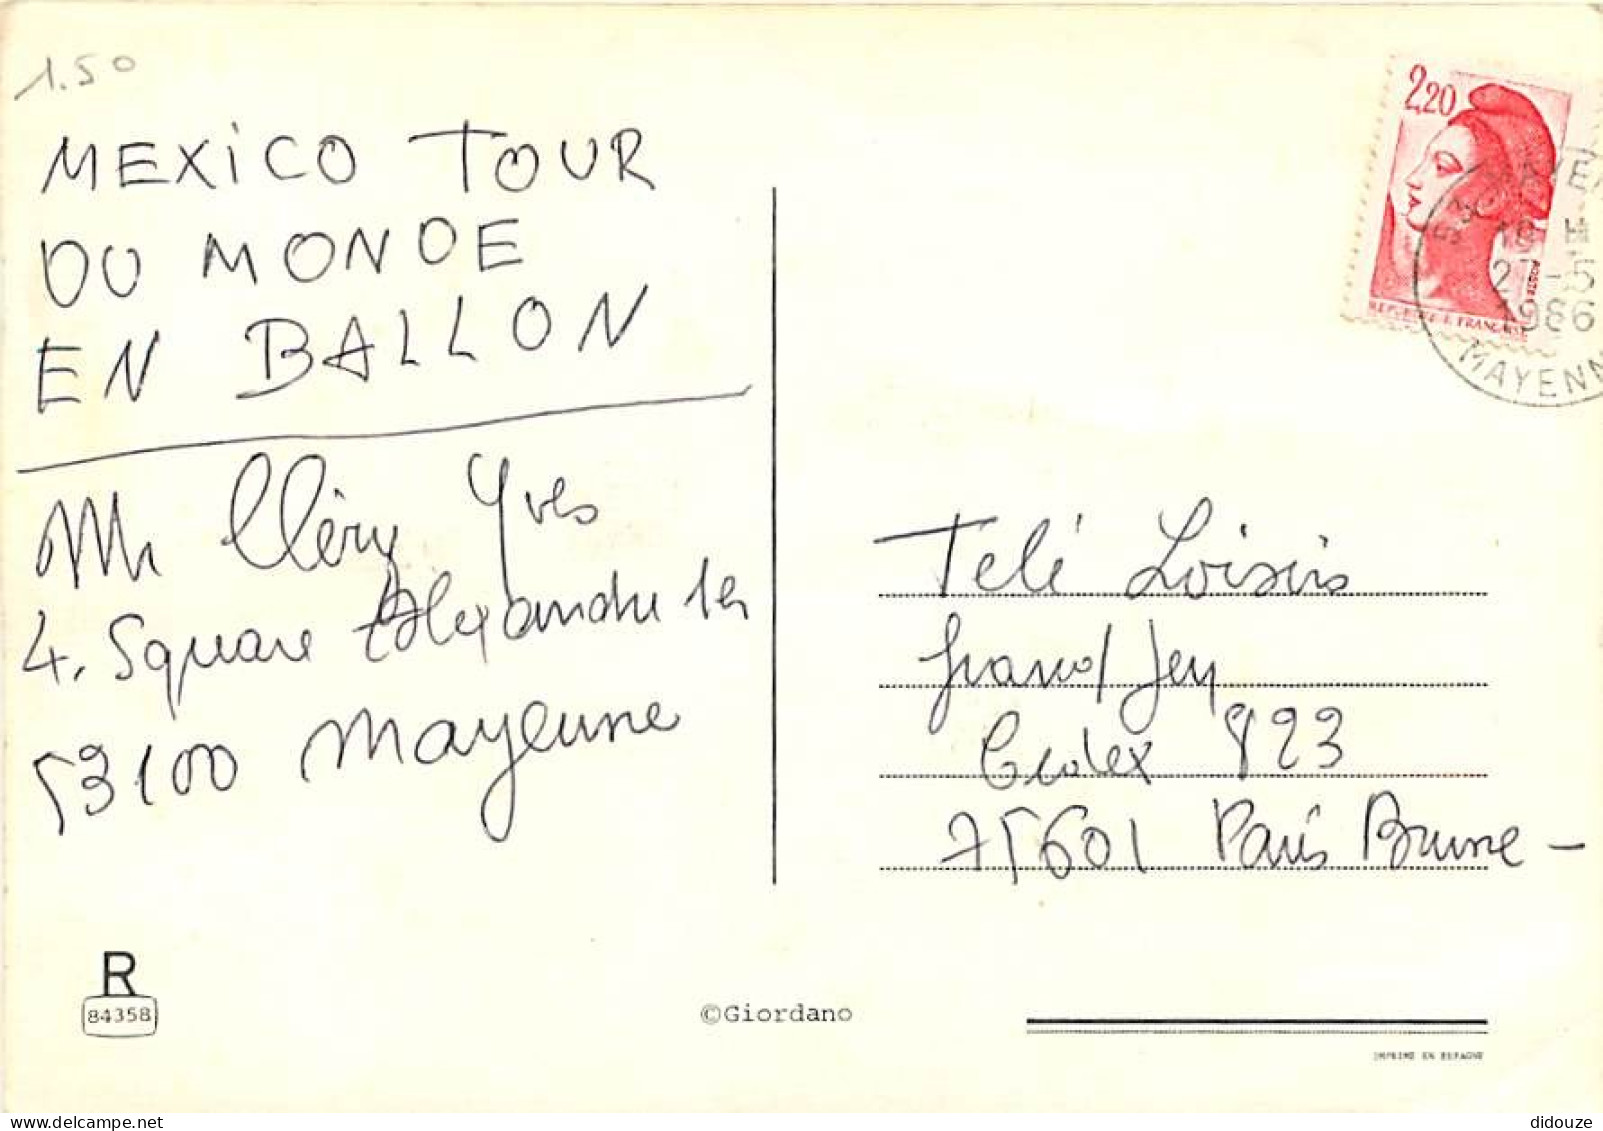 1.50
MEXICO TOUR
DU MONDE
EN BALLON
Mr Cléry Yves
4. Square Alexandre 1er
53100 Mayenne
R
84358
©Giordano
2,20
REPUBLIQUE FRANÇAISE
18 H
27-5
1986
MAYENN
Télé Loisirs
Grand Jeu
Cedex 823
75601 Paris Brune -
IMPRIMÉ EN ESPAGNE
didouze